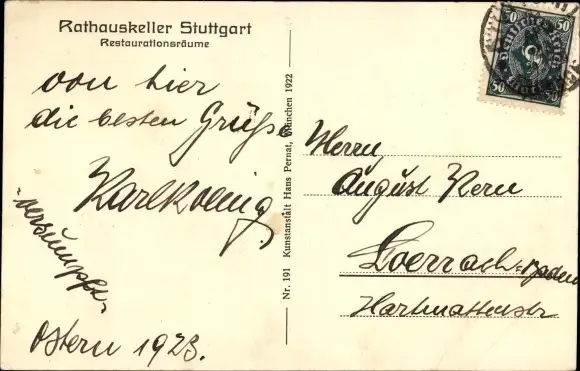 Rathauskeller Stuttgart
Restaurationsräume
von hier
die besten Grüße
Karl Koenig
-versumpft-
Ostern 1923.
Nr. 191 Kunstanstalt Hans Pernat, München 1922
50 50
50 50
Herrn
August Kern
Loerrach-Baden
Hartmattenstr